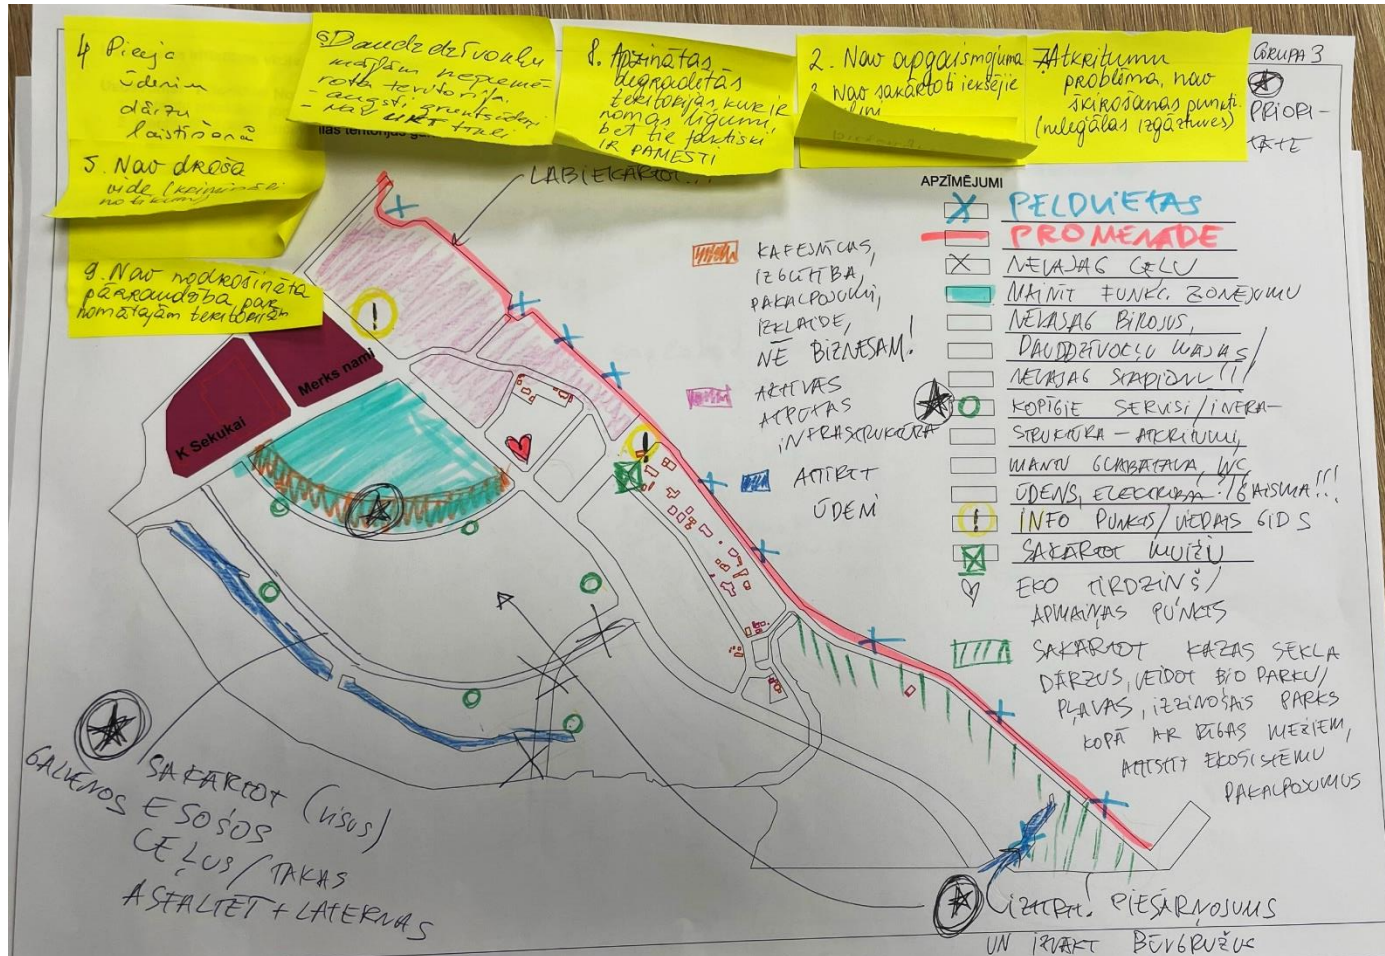 4 Pieeja
ūdenim
dārzu
laistīšanā
5. Nav droša
vide (krimināli
notikumi
9. Nav nodrošināta
pārraudzība par
nomātajām teritorijām
6 Daudzdzīvokļu
mājām nepiemē-
rota teritorija.
- augsti gruntsūdeņi
- nav tīkli
8. Apzinātas
degradētās
teritorijas, kur ir
nomas līgumi,
bet tie faktiski
IR PAMESTI
2. Nav apgaismojuma
Nav sakārtoti iekšējie
7. Atkritumu
problēma, nav
šķirošanas punkti.
(nelegālas izgāztuves)
GRUPA 3
PRIORI-
TĀTE
LABIEKĀRTOT!!!
APZĪMĒJUMI
PELDVIETAS
PROMENĀDE
NEVAJAG CEĻU
MAINĪT FUNKC. ZONĒJUMU
NEVAJAG BIROJUS,
DAUDDZĪVOKĻU MĀJAS/
NEVAJAG STADIONU!!!
KOPĪGIE SERVISI/INFRA-
STRUKTŪRA - ATKRITUMI,
MANTU GLABĀTAVA, WC,
ŪDENS, ELEKTRĪBA!/GAISMA!!!
INFO PUNKTS/VIEDAIS GIDS
SAKĀRTOT MUIŽU
EKO TIRDZIŅŠ/
APMAIŅAS PUNKTS
SAKĀRTOT KAZAS SĒKĻA
DĀRZUS, VEIDOT BIO PARKU/
PĻAVAS, IZZINOŠAIS PARKS
KOPĀ AR RĪGAS MEŽIEM,
ATTĪSTĪT EKOSISTĒMU
PAKALPOJUMUS
KAFEJNĪCAS,
IZGLĪTĪBA,
PAKALPOJUMI,
IZKLAIDE,
NĒ BIZNESAM!
AKTĪVĀS
ATPŪTAS
INFRASTRUKTŪRA
ATTĪRĪT
ŪDENI
Merks nami
K Sekukai
GALVENOS
SAKĀRTOT (visus)
ESOŠOS
CEĻUS/TAKAS
ASFALTĒT + LATERNAS
PIESĀRŅOJUMS
UN IZVĀKT BŪVGRUŽUS